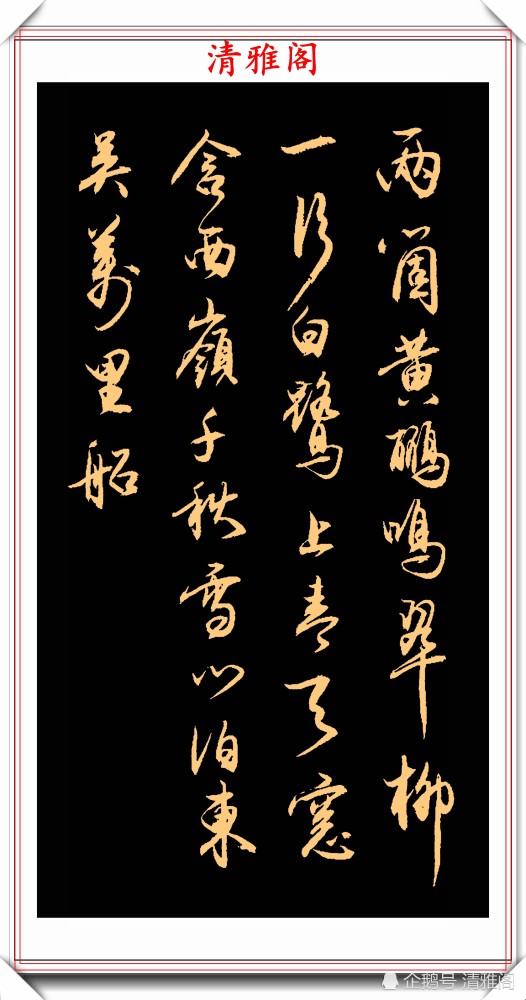 清雅阁
两箇黄鹂鸣翠柳
一行白鹭上青天窓
含西嶺千秋雪门泊東
吴萬里船
企鹅号 清雅阁